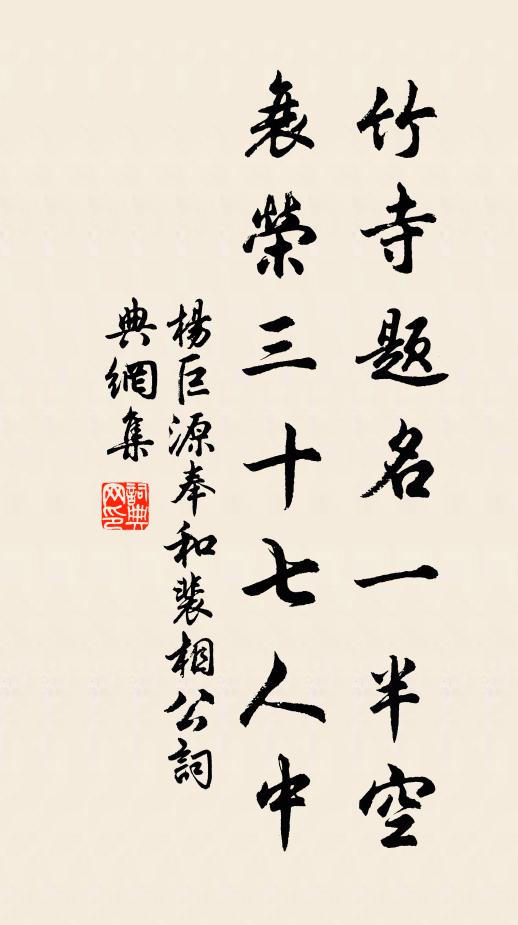 竹寺題名一半空
衰榮三十七人中
楊巨源奉和裴相公詞
典網集
詞典網印